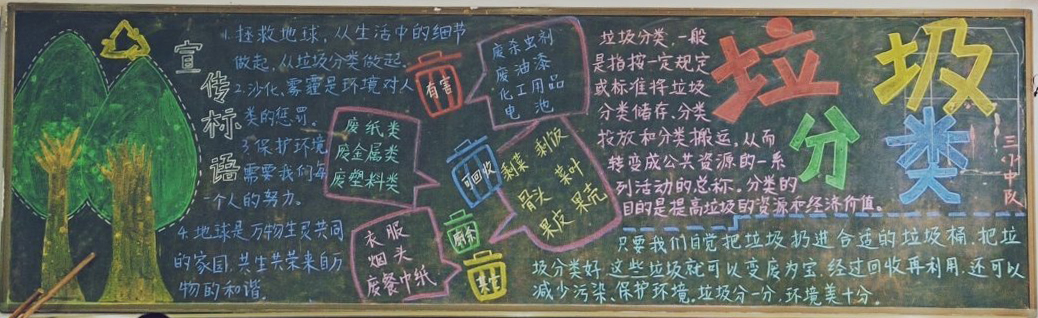 宣传标语
1.拯救地球,从生活中的细节
做起,从垃圾分类做起。
2.沙化、雾霾是环境对人
类的惩罚。
3.保护环境
需要我们每
一个人的努力。
4.地球是万物生灵共同
的家园,共生共荣来自万
物的和谐。
有害
废杀虫剂
废油漆
化工用品
电池
可回收
废纸类
废金属类
废塑料类
厨余
剩菜 剩饭
骨头 菜叶
果皮 果壳
其它
衣服
烟头
废餐巾纸
垃圾分类,一般
是指按一定规定
或标准将垃圾
分类储存、分类
投放和分类搬运,从而
转变成公共资源的一系
列活动的总称。分类的
目的是提高垃圾的资源和经济价值。
垃圾
分类
三小中队
只要我们自觉把垃圾扔进合适的垃圾桶,把垃
圾分类好,这些垃圾就可以变废为宝,经过回收再利用,还可以
减少污染、保护环境。垃圾分一分,环境美十分。